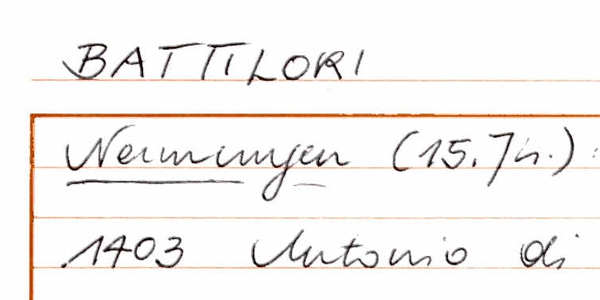 BATTILORI
Nennungen (15. Jh.):
1403 Antonio di